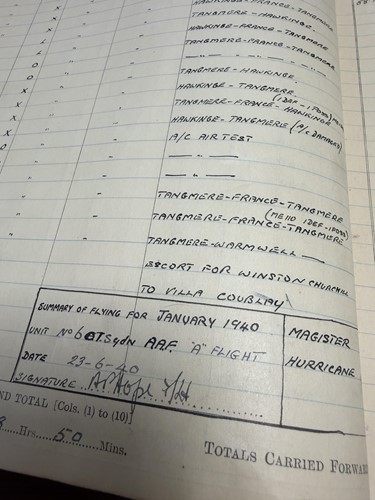 HAWKINGE-FRANCE-TANGMERE
TANGMERE-HAWKINGE.
HAWKINGE-FRANCE-TANGMERE
TANGMERE-FRANCE-TANGMERE
— " — " — " —
TANGMERE-HAWKINGE.
HAWKINGE-TANGMERE.
(1 DEF-1 POSS)
TANGMERE-FRANCE-HAWKINGE
HAWKINGE-TANGMERE (A/C DAMAGED)
A/C AIR TEST
— " —
— " —
TANGMERE-FRANCE-TANGMERE
(ME110 1DEF-1POSS)
TANGMERE-FRANCE-TANGMERE
TANGMERE-WARMWELL —
ESCORT FOR WINSTON CHURCHILL
TO VILLA COUBLAY
SUMMARY OF FLYING FOR JANUARY 1940
UNIT No 601 Sqdn AAF. "A" FLIGHT
DATE 23-6-40
SIGNATURE
MAGISTER
HURRICANE
ND TOTAL [Cols. (1) to (10)]
Hrs. 50 Mins.
TOTALS CARRIED FORWAR